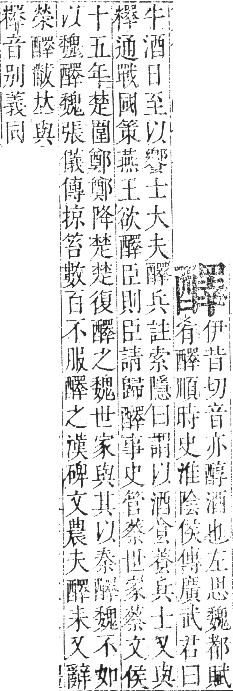 醳
伊昔切音亦醇酒也左思魏都賦
肴醳順時史淮陰侯傳廣武君曰
牛酒日至以饗士大夫醳兵註索隱曰謂以酒食養兵士又與
釋通戰國策燕王欲醳臣則臣請歸醳事史管蔡世家蔡文侯
十五年楚圍鄭鄭降楚楚復醳之魏世家與其以秦醳魏不如
以魏醳魏張儀傳掠笞數百不服醳之漢碑文農夫醳耒又辭
榮醳黻𠀤與
釋音別義同